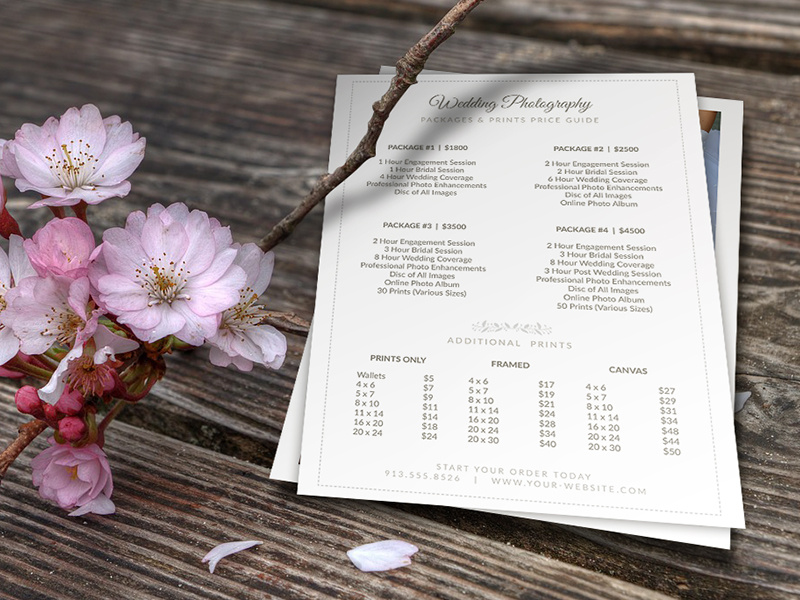 Wedding Photography
PACKAGES & PRINTS PRICE GUIDE
PACKAGE #1 | $1800
1 Hour Engagement Session
1 Hour Bridal Session
4 Hour Wedding Coverage
Professional Photo Enhancements
Disc of All Images
PACKAGE #2 | $2500
2 Hour Engagement Session
2 Hour Bridal Session
6 Hour Wedding Coverage
Professional Photo Enhancements
Disc of All Images
Online Photo Album
PACKAGE #3 | $3500
2 Hour Engagement Session
3 Hour Bridal Session
8 Hour Wedding Coverage
Professional Photo Enhancements
Disc of All Images
Online Photo Album
30 Prints (Various Sizes)
PACKAGE #4 | $4500
2 Hour Engagement Session
3 Hour Bridal Session
8 Hour Wedding Coverage
3 Hour Post Wedding Session
Professional Photo Enhancements
Disc of All Images
Online Photo Album
50 Prints (Various Sizes)
ADDITIONAL PRINTS
PRINTS ONLY
Wallets $5
4 x 6 $7
5 x 7 $9
8 x 10 $11
11 x 14 $14
16 x 20 $18
20 x 24 $24
FRAMED
4 x 6 $17
5 x 7 $19
8 x 10 $21
11 x 14 $24
16 x 20 $28
20 x 24 $34
20 x 30 $40
CANVAS
4 x 6 $27
5 x 7 $29
8 x 10 $31
11 x 14 $34
16 x 20 $48
20 x 24 $44
20 x 30 $50
START YOUR ORDER TODAY
913.555.8526 | WWW.YOUR-WEBSITE.COM